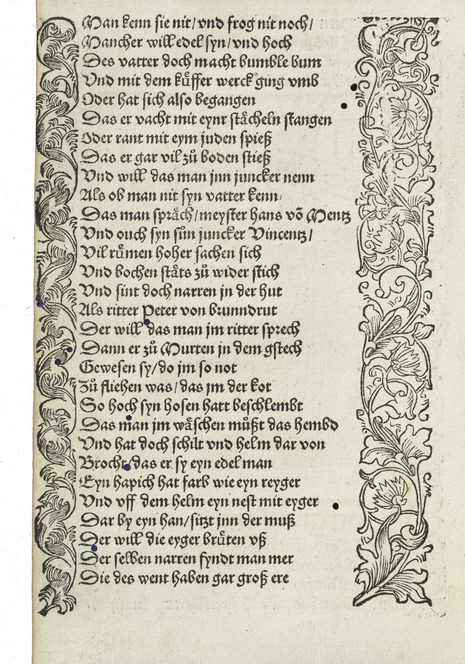 Man kenn sie nit/ vnd frog nit noch/
Mancher will edel syn/ vnd hoch
Des vatter doch macht bumble bum
Vnd mit dem kuͤffer werck ging vmb
Oder hat sich also begangen
Das er vacht mit eynr staͤcheln stangen
Oder rant mit eym juden spieß
Das er gar vil zuͦ boden stieß
Vnd will das man jnn juncker nenn
Als ob man nit syn vatter kenn/
Das man spraͤch/ meyster hans vō Mentz
Vnd ouch syn suͤn juncker Vincentz/
Vil ruͤmen hoher sachen sich
Vnd bochen staͤts zuͦ wider stich
Vnd sint doch narren in der hut
Als ritter Peter von brunndrut
Der will das man jm ritter sprech
Dann er zuͦ Murten in dem gstech
Gewesen sy/ do jm so not
Zuͦ fliehen was/ das jm der kot
So hoch syn hosen hatt beschlembt
Das man jm waͤschen muͤßt das hembd
Vnd hat doch schilt vnd helm dar von
Brocht/ das er sy eyn edel man
Eyn hapich hat farb wie eyn reyger
Vnd vff dem helm eyn nest mit eyger
Dar by eyn han/ sitzt jnn der muß
Der will die eyger bruͤten vß
Der selben narren fyndt man mer
Die des went haben gar groß ere